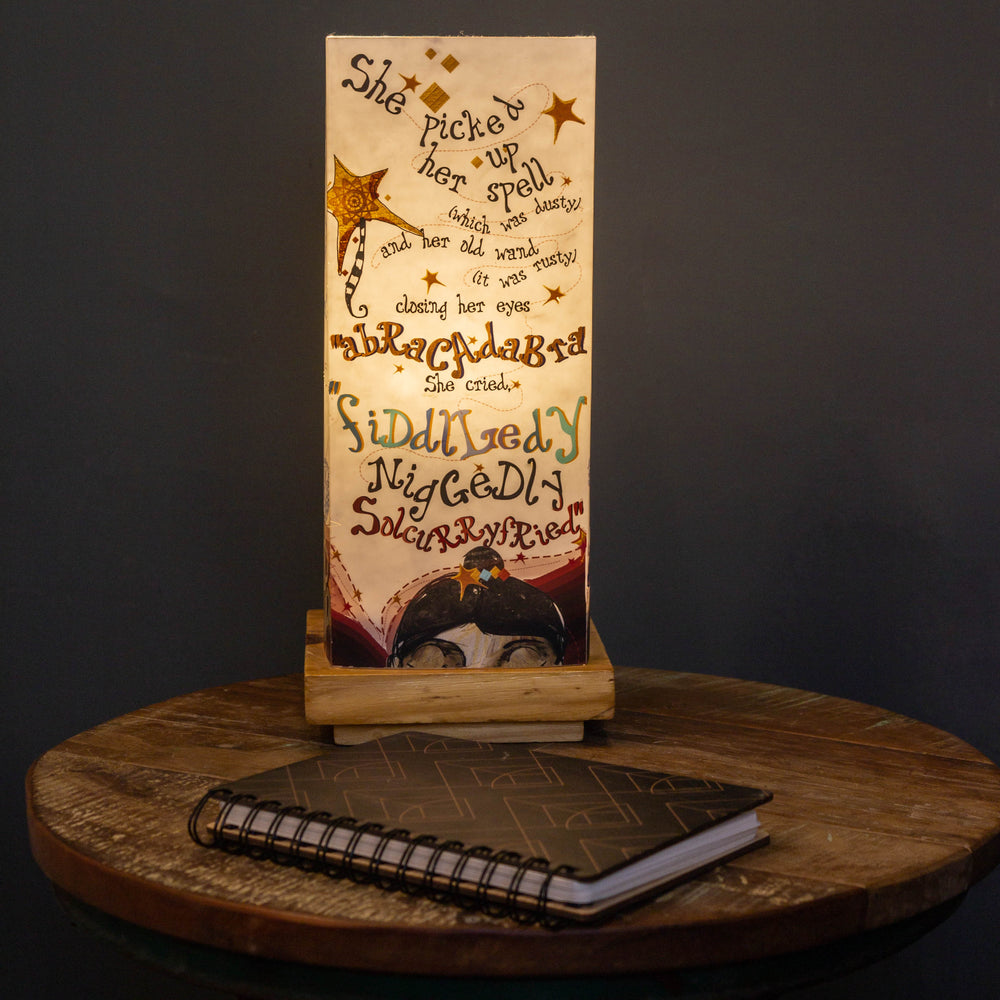 She
picked
her up
spell
(which was dusty)
and her old wand
(it was rusty)
closing her eyes
"abRaCAdaBra"
She cried,
"fiDdlLedy
NigGeDly
SolcuRRyfRied"